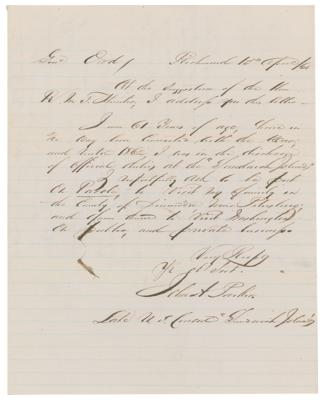 Genl Ord /        Richmond 15th April /65
At the suggestion of the Hon
R. M. T. Hunter, I address you this letter—
I am 61 Years of age, have in
no way been connected with the Army,
and until 1862 I was in the discharge
of official duties at the Sandwich Islands
I respectfully ask to be put
on Parole, to visit my family in
the County of
and
on public and private business
Very Respy
Yr Obt Svt.
John A Parker
Late U S Consul Sandwich Islands